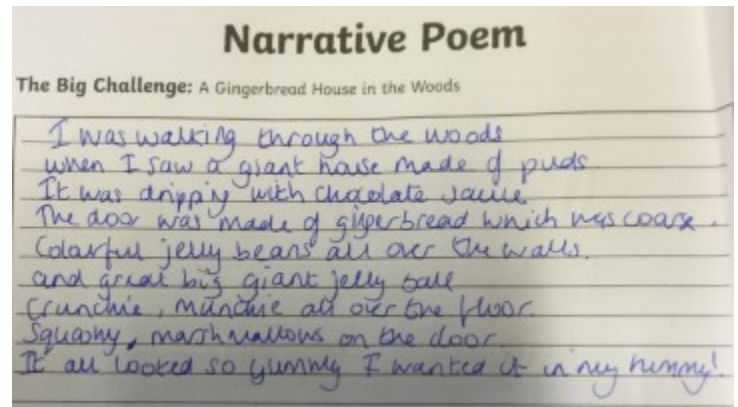 Narrative Poem
The Big Challenge: A Gingerbread House in the Woods
I was walking through the woods
when I saw a giant house made of puds.
It was dripping with chocolate sauce
The door was made of gigerbread which was coarse.
Colourful jelly beans all over the walls.
and great big giant jelly ball
Crunchie, munchie all over the floor.
Squashy, marshmallows on the door
It all looked so yummy I wanted it in my tummy!